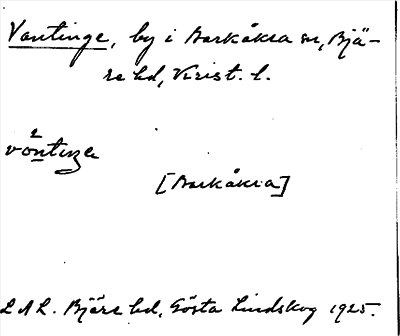 Vantinge, by i Barkåkra sn, Bjä-
re hd, Krist. l.
[Barkåkra]
L A L. Bjäre hd, Gösta Lindskog 1925.